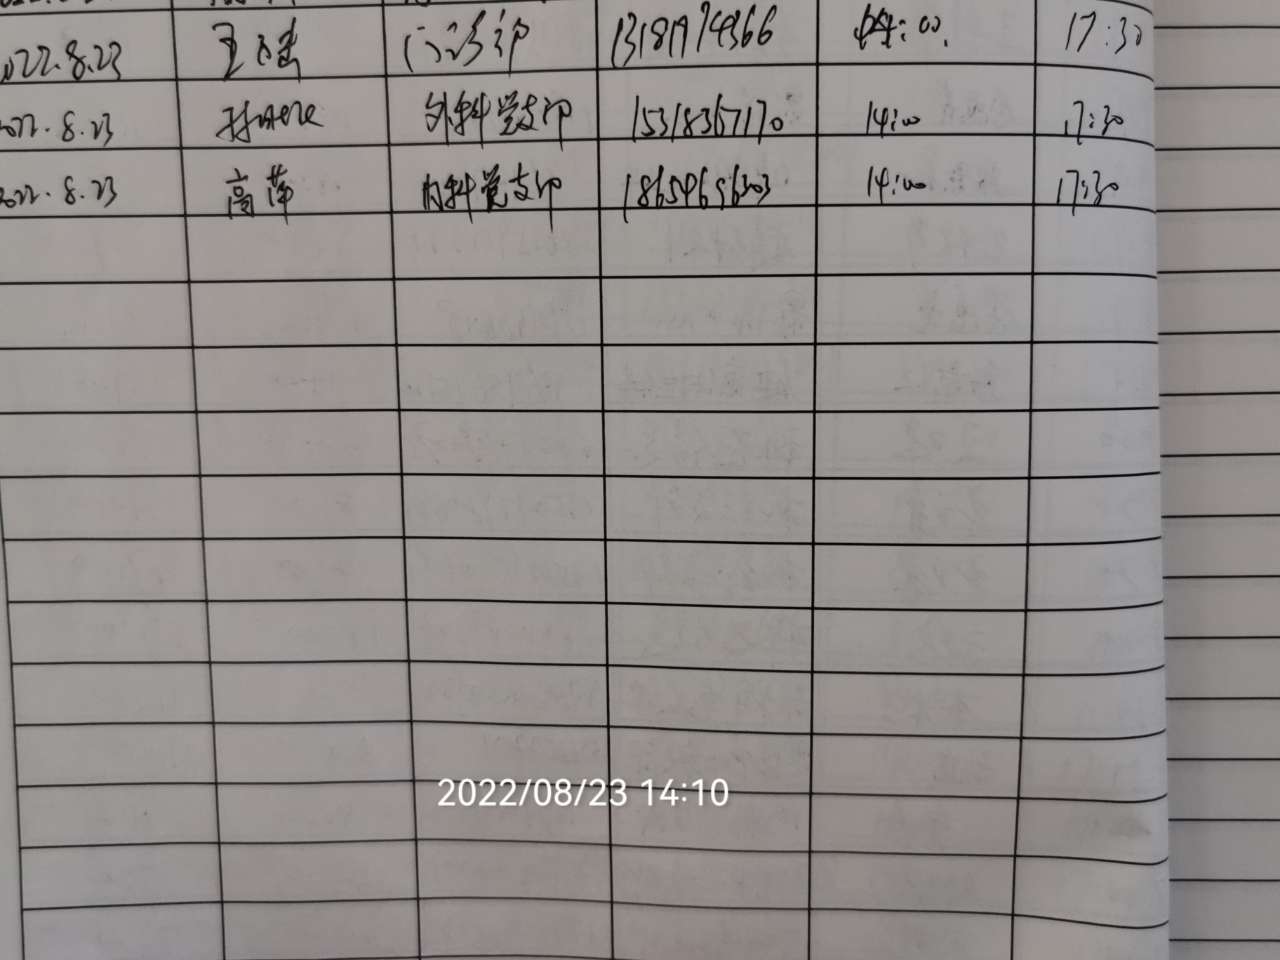 2022.8.23 王 门诊部 :00. 17:30
2022.8.23 外科党支部 15318367170 14:00 17:30
2022.8.23 高萍 内科党支部 18654696303 14:00 17:30
2022/08/23 14:10